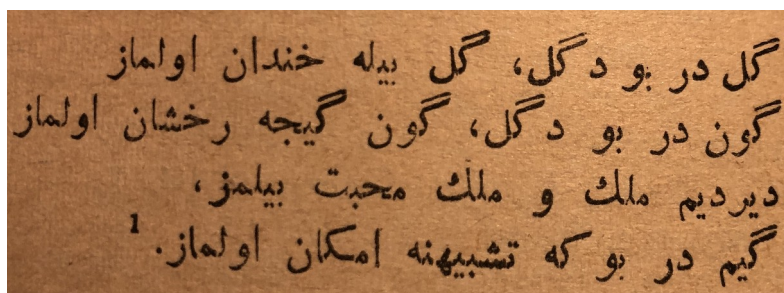 گل در بو د گل، گل بیله خندان اولماز
گون در بو د گل، گون گیجه رخشان اولماز
دیردیم ملك و ملك محبت بیلمز،
گیم در بو که تشبیهنه امکان اولماز. 1